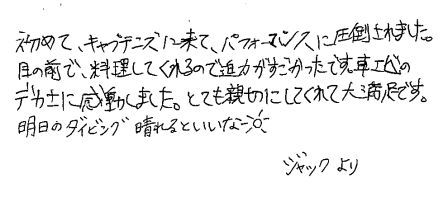 初めて、キャプテンズに来て、パフォーマンスに圧倒されました。
目の前で、料理してくれるので迫力がすごかったです。車エビの
デカさに感動しました。とても親切にしてくれて大満足です。
明日のダイビング晴れるといいな
ジャックより